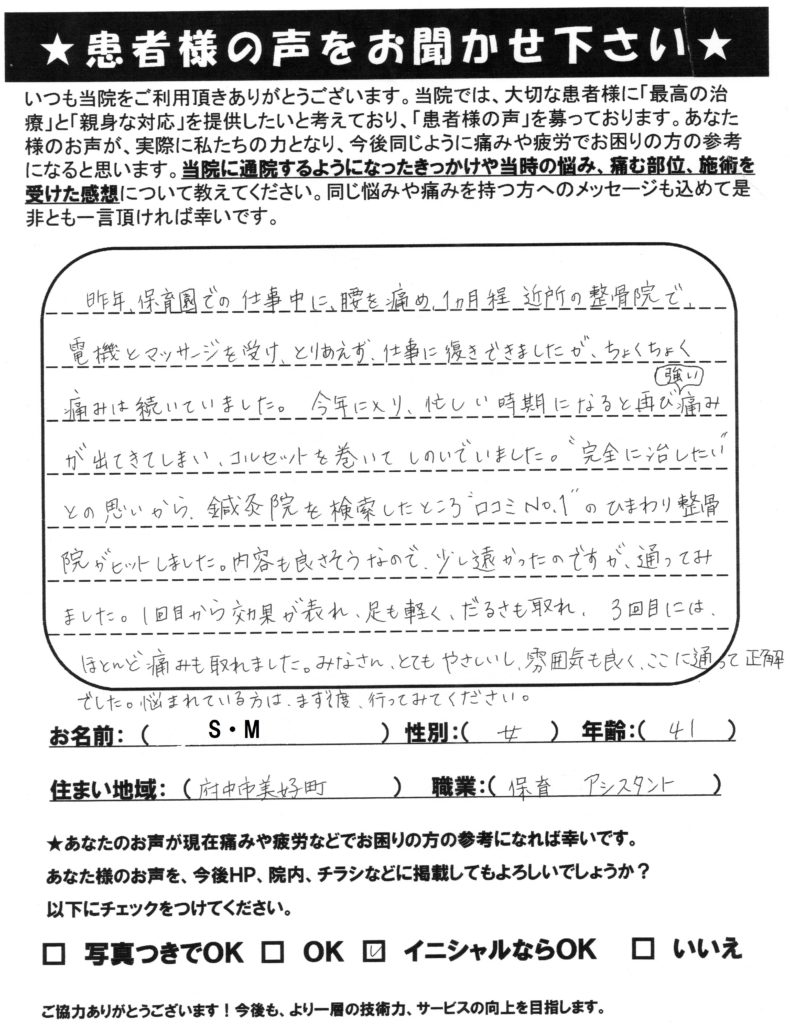 ★患者様の声をお聞かせ下さい★
いつも当院をご利用頂きありがとうございます。当院では、大切な患者様に「最高の治
療」と「親身な対応」を提供したいと考えており、「患者様の声」を募っております。あなた
様のお声が、実際に私たちの力となり、今後同じように痛みや疲労でお困りの方の参考
になると思います。当院に通院するようになったきっかけや当時の悩み、痛む部位、施術を
受けた感想について教えてください。同じ悩みや痛みを持つ方へのメッセージも込めて是
非とも一言頂ければ幸いです。
昨年、保育園での仕事中に、腰を痛め、1ヵ月程 近所の整骨院で、
電機とマッサージを受け、とりあえず、仕事に復きできましたが、ちょくちょく
痛みは続いていました。 今年に入り、忙しい時期になると再び強い痛み
が出てきてしまい、コルセットを巻いてしのいでいました。"完全に治したい"
との思いから、鍼灸院を検索したところ"口コミNo.1"のひまわり整骨
院がヒットしました。内容も良さそうなので、少し遠かったのですが、通ってみ
ました。1回目から効果が表れ、足も軽く、だるさも取れ、 3回目には、
ほとんど痛みも取れました。みなさん、とてもやさしいし、雰囲気も良く、ここに通って正解
でした。悩まれている方は、まず1度、行ってみてください。
お名前:( S・M ) 性別:( 女 ) 年齢:( 41 )
住まい地域:( 府中市美好町 ) 職業:( 保育 アシスタント )
★あなたのお声が現在痛みや疲労などでお困りの方の参考になれば幸いです。
あなた様のお声を、今後HP、院内、チラシなどに掲載してもよろしいでしょうか?
以下にチェックをつけてください。
□ 写真つきでOK □ OK ☑ イニシャルならOK □ いいえ
ご協力ありがとうございます!今後も、より一層の技術力、サービスの向上を目指します。